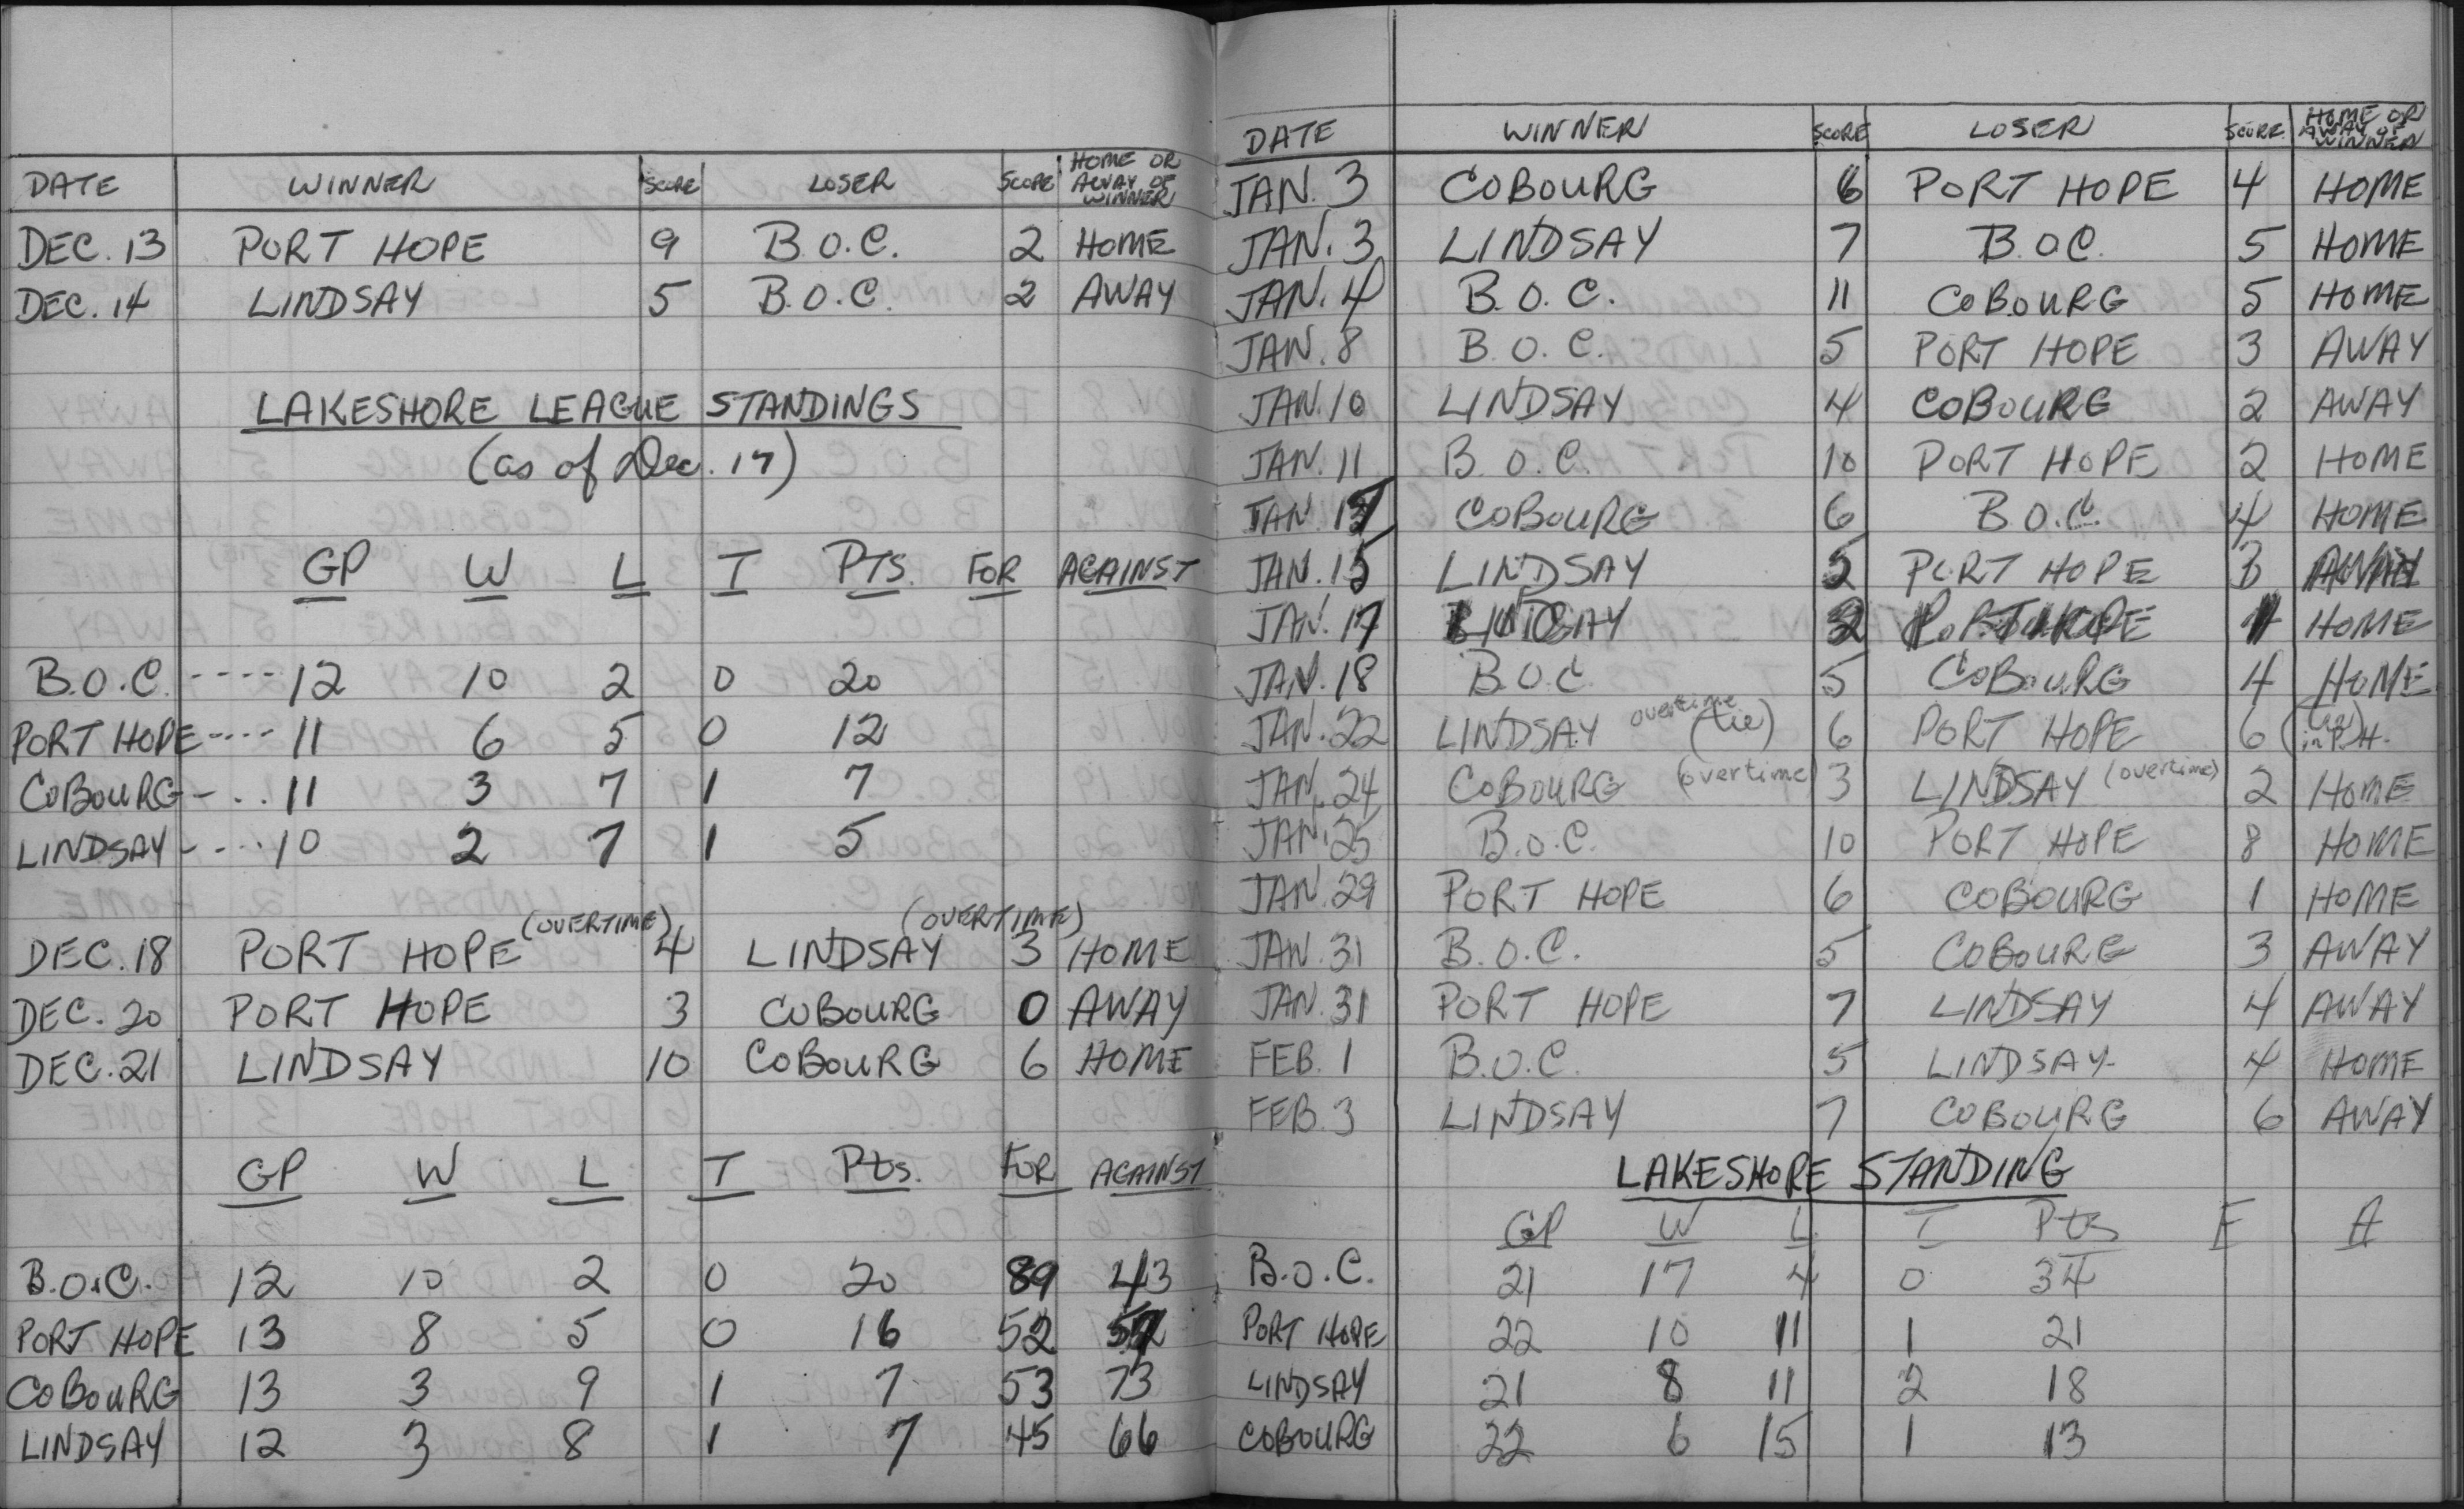 DATE WINNER SCORE LOSER SCORE HOME OR AWAY OF WINNER
DEC. 13 PORT HOPE 9 B.O.C. 2 HOME
DEC. 14 LINDSAY 5 B.O.C. 2 AWAY
LAKESHORE LEAGUE STANDINGS
(as of Dec. 17)
GP W L T PTS. FOR AGAINST
B.O.C. ---- 12 10 2 0 20
PORT HOPE ---- 11 6 5 0 12
COBOURG - .. 11 3 7 1 7
LINDSAY - --- 10 2 7 1 5
DEC. 18 PORT HOPE (OVERTIME) 4 LINDSAY (OVERTIME) 3 HOME
DEC. 20 PORT HOPE 3 COBOURG 0 AWAY
DEC. 21 LINDSAY 10 COBOURG 6 HOME
GP W L T Pts. FOR AGAINST
B.O.C. 12 10 2 0 20 89 43
PORT HOPE 13 8 5 0 16 52
COBOURG 13 3 9 1 7 53 73
LINDSAY 12 3 8 1 7 45 66
DATE WINNER SCORE LOSER SCORE HOME OR AWAY OF WINNER
JAN. 3 COBOURG 6 PORT HOPE 4 HOME
JAN. 3 LINDSAY 7 B.O.C. 5 HOME
JAN. 4 B.O.C. 11 COBOURG 5 HOME
JAN. 8 B.O.C. 5 PORT HOPE 3 AWAY
JAN. 10 LINDSAY 4 COBOURG 2 AWAY
JAN. 11 B.O.C. 10 PORT HOPE 2 HOME
JAN. COBOURG 6 B.O.C. 4 HOME
JAN. 15 LINDSAY 5 PORT HOPE 3
JAN. 17 HOME
JAN. 18 B.O.C 5 COBOURG 4 HOME
JAN. 22 LINDSAY overtime (tie) 6 PORT HOPE 6 (tie) in P.H.
JAN. 24 COBOURG (overtime) 3 LINDSAY (overtime) 2 HOME
JAN. 25 B.O.C. 10 PORT HOPE 8 HOME
JAN. 29 PORT HOPE 6 COBOURG 1 HOME
JAN. 31 B.O.C. 5 COBOURG 3 AWAY
JAN. 31 PORT HOPE 7 LINDSAY 4 AWAY
FEB. 1 B.O.C. 5 LINDSAY 4 HOME
FEB. 3 LINDSAY 7 COBOURG 6 AWAY
LAKESHORE STANDING
GP W L T Pts F A
B.O.C. 21 17 4 0 34
PORT HOPE 22 10 11 1 21
LINDSAY 21 8 11 2 18
COBOURG 22 6 15 1 13